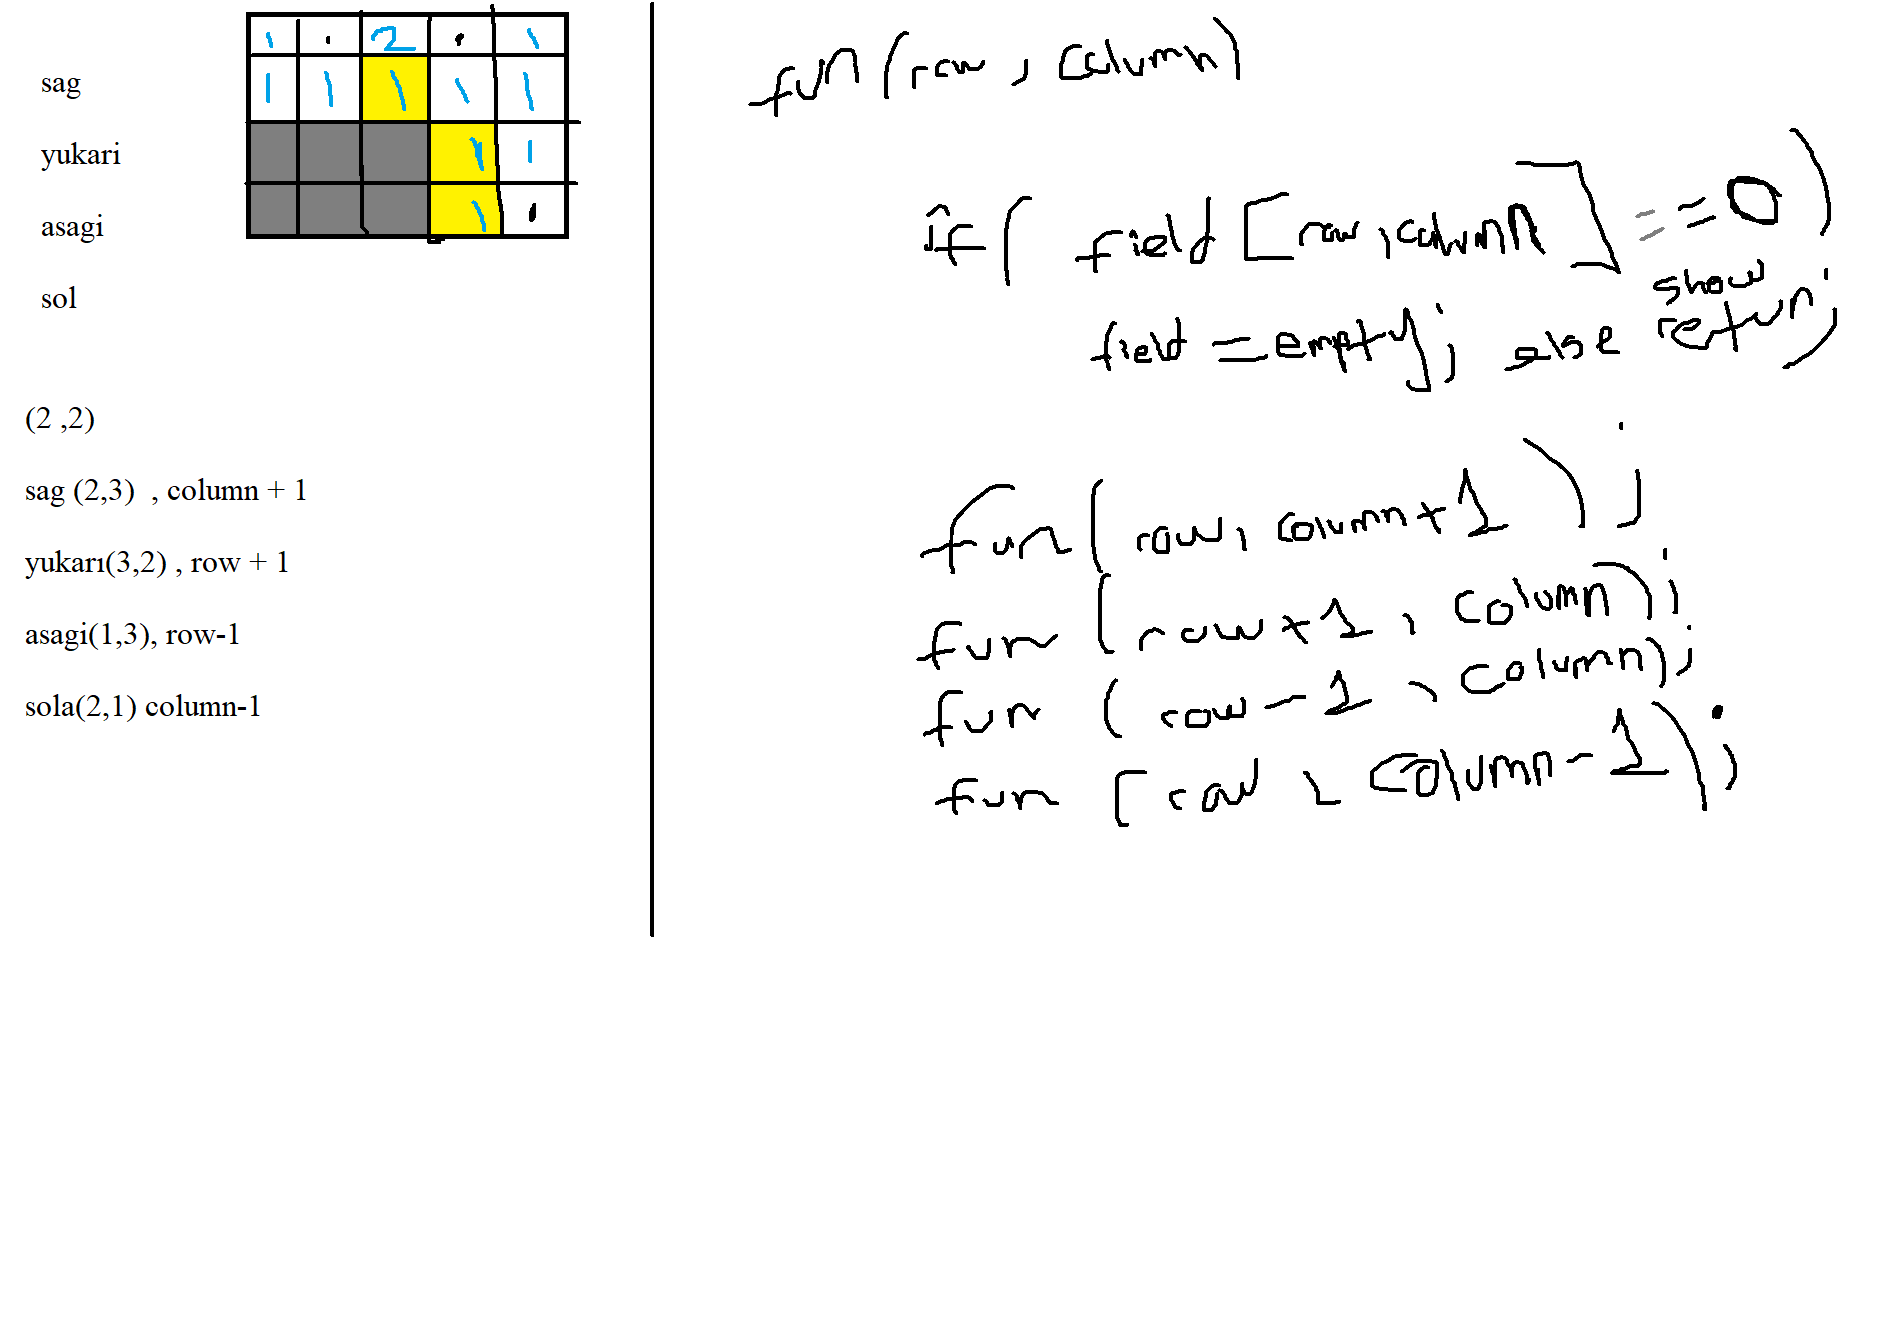 1 . 2 . 1
1 1 1 1 1
1 1
1 .
sag
yukari
asagi
sol
(2 ,2)
sag (2,3) , column + 1
yukarı(3,2) , row + 1
asagi(1,3), row-1
sola(2,1) column-1
fun(row, column)
if( field [row,column] == 0)
show
field = empty; else return;
fun(row, column+1);
fun(row+1, column);
fun(row-1, column);
fun[row, column-1);